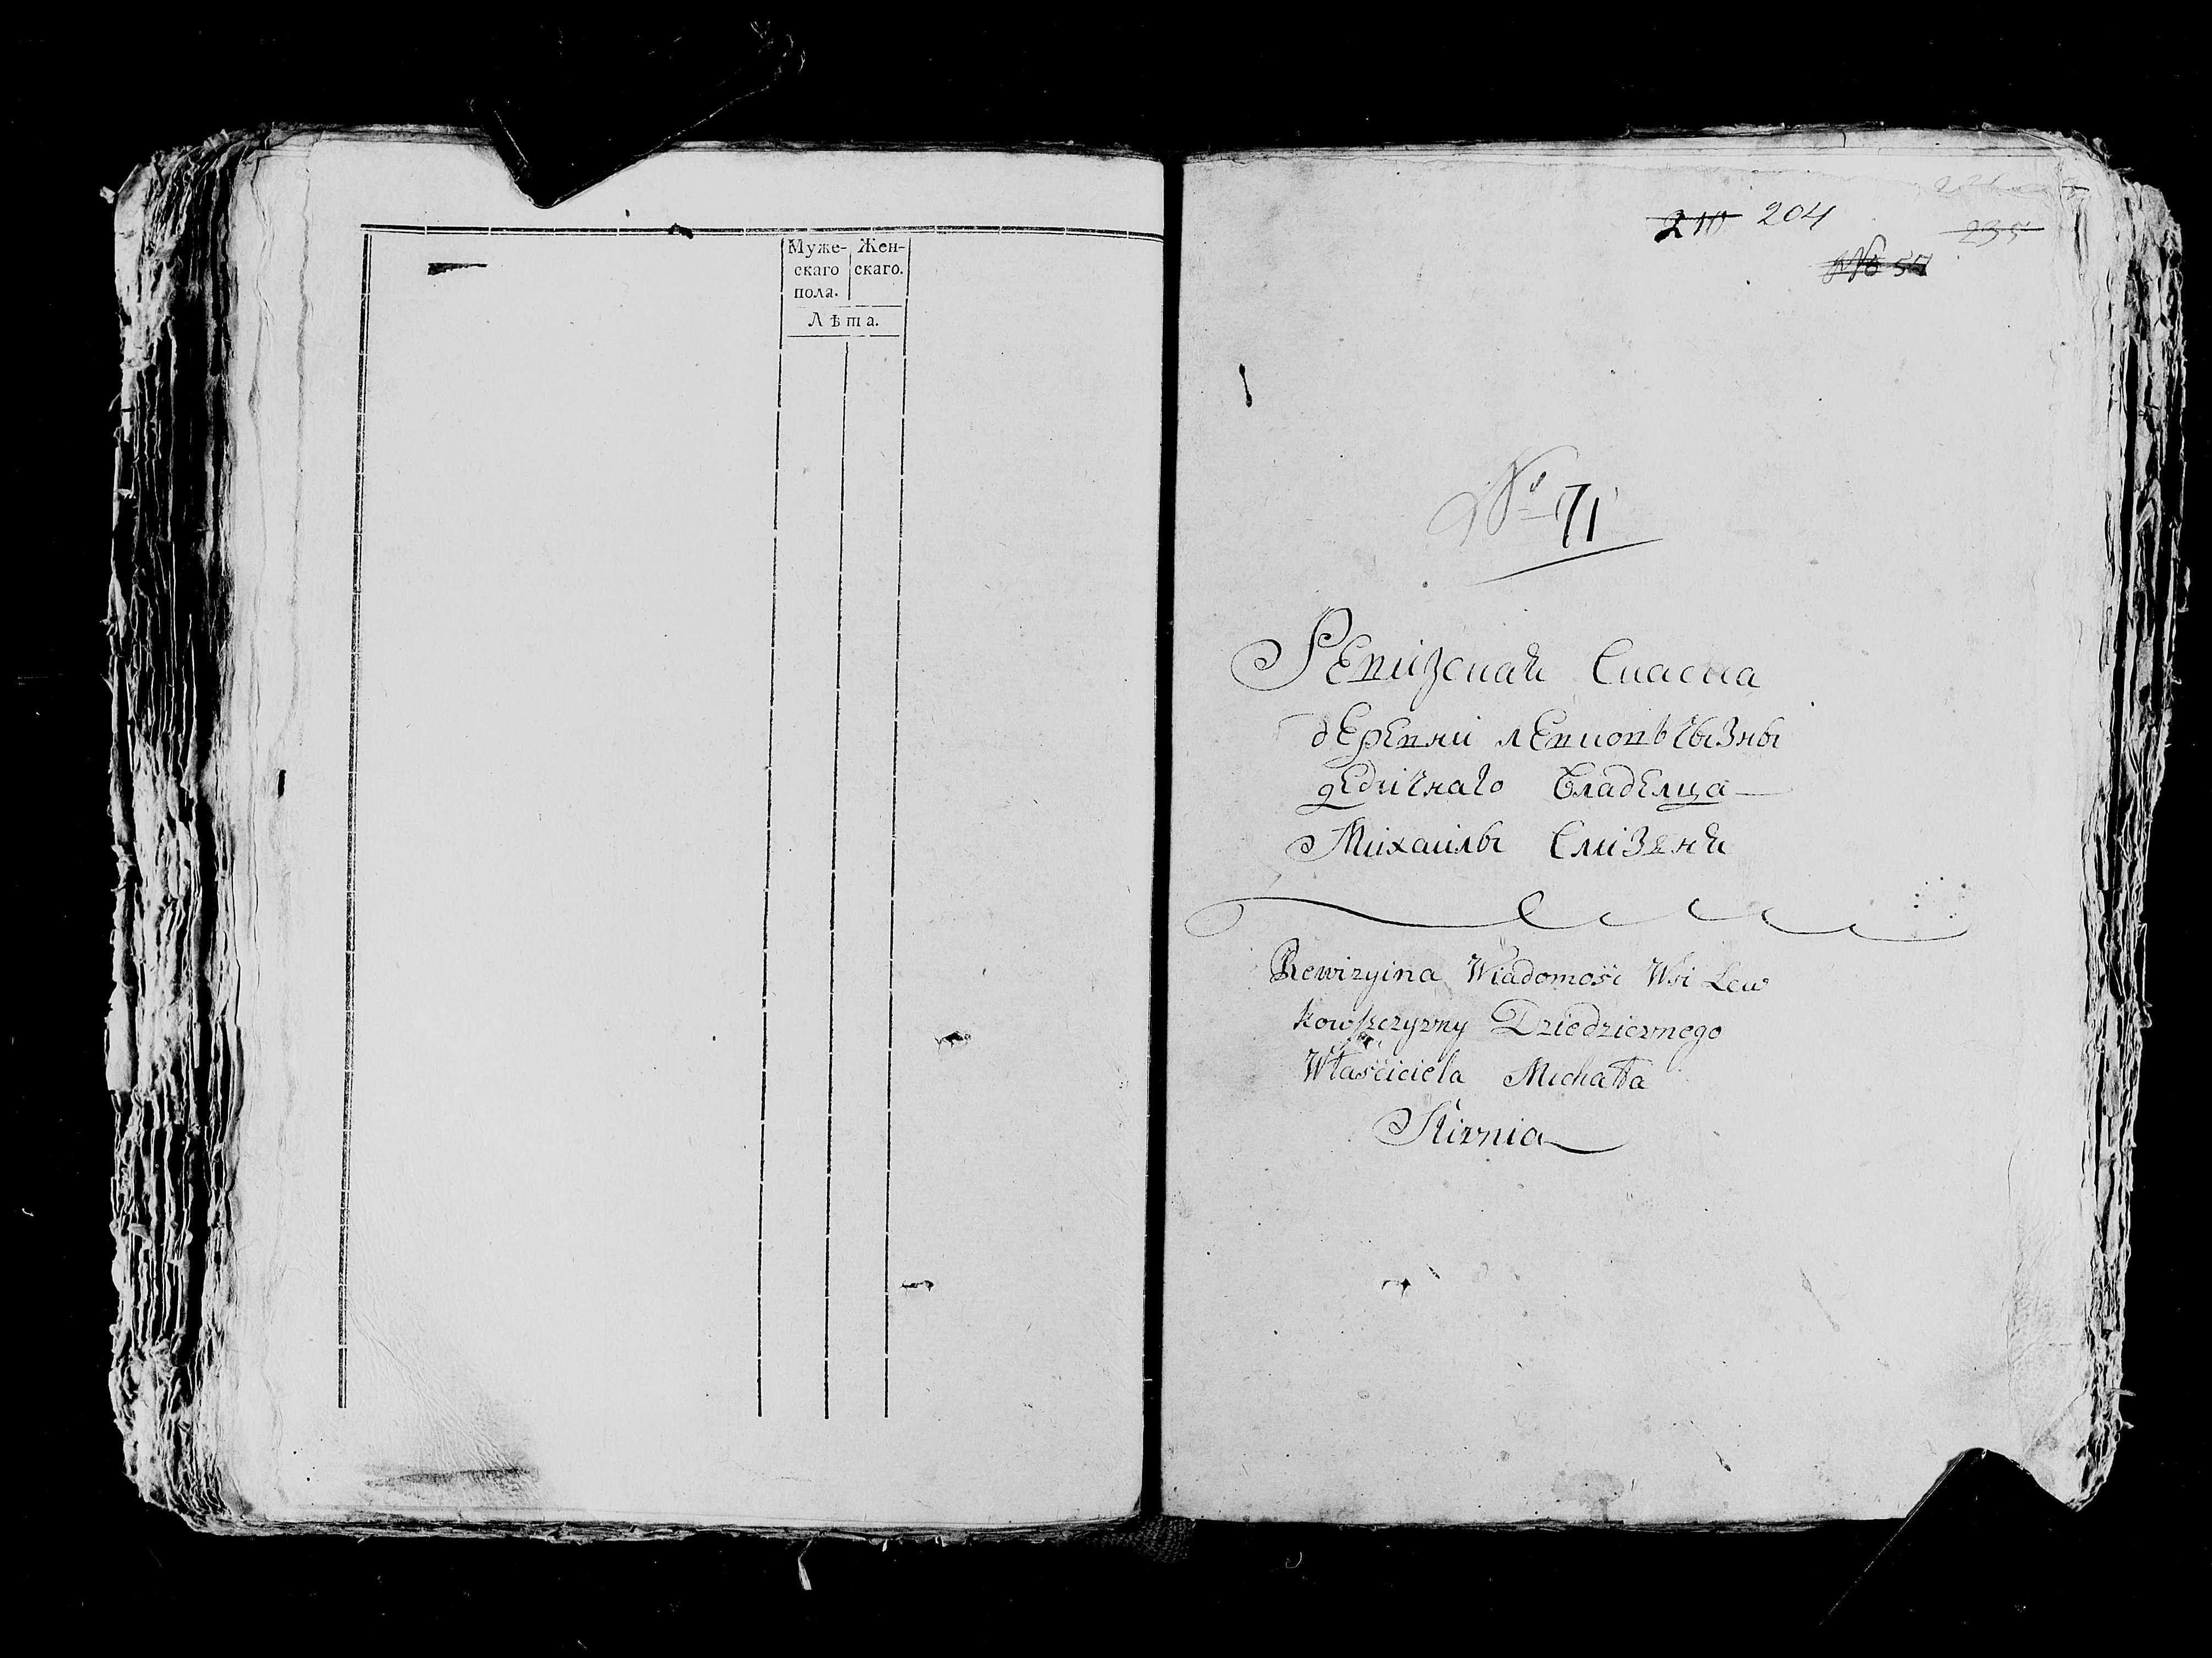 Муже- Жен-
скаго скаго.
пола.
Лѣта.
204
235
№ 57
№ 71
Ревизская Сказка
деревни левковъчызны
дедичнаго Владелца
Михаилы Слизеня
Rewizyina Wiadomość Wsi Lew
kowszczyzny Dziedzicznego
Właściciela Michała
Sliznia